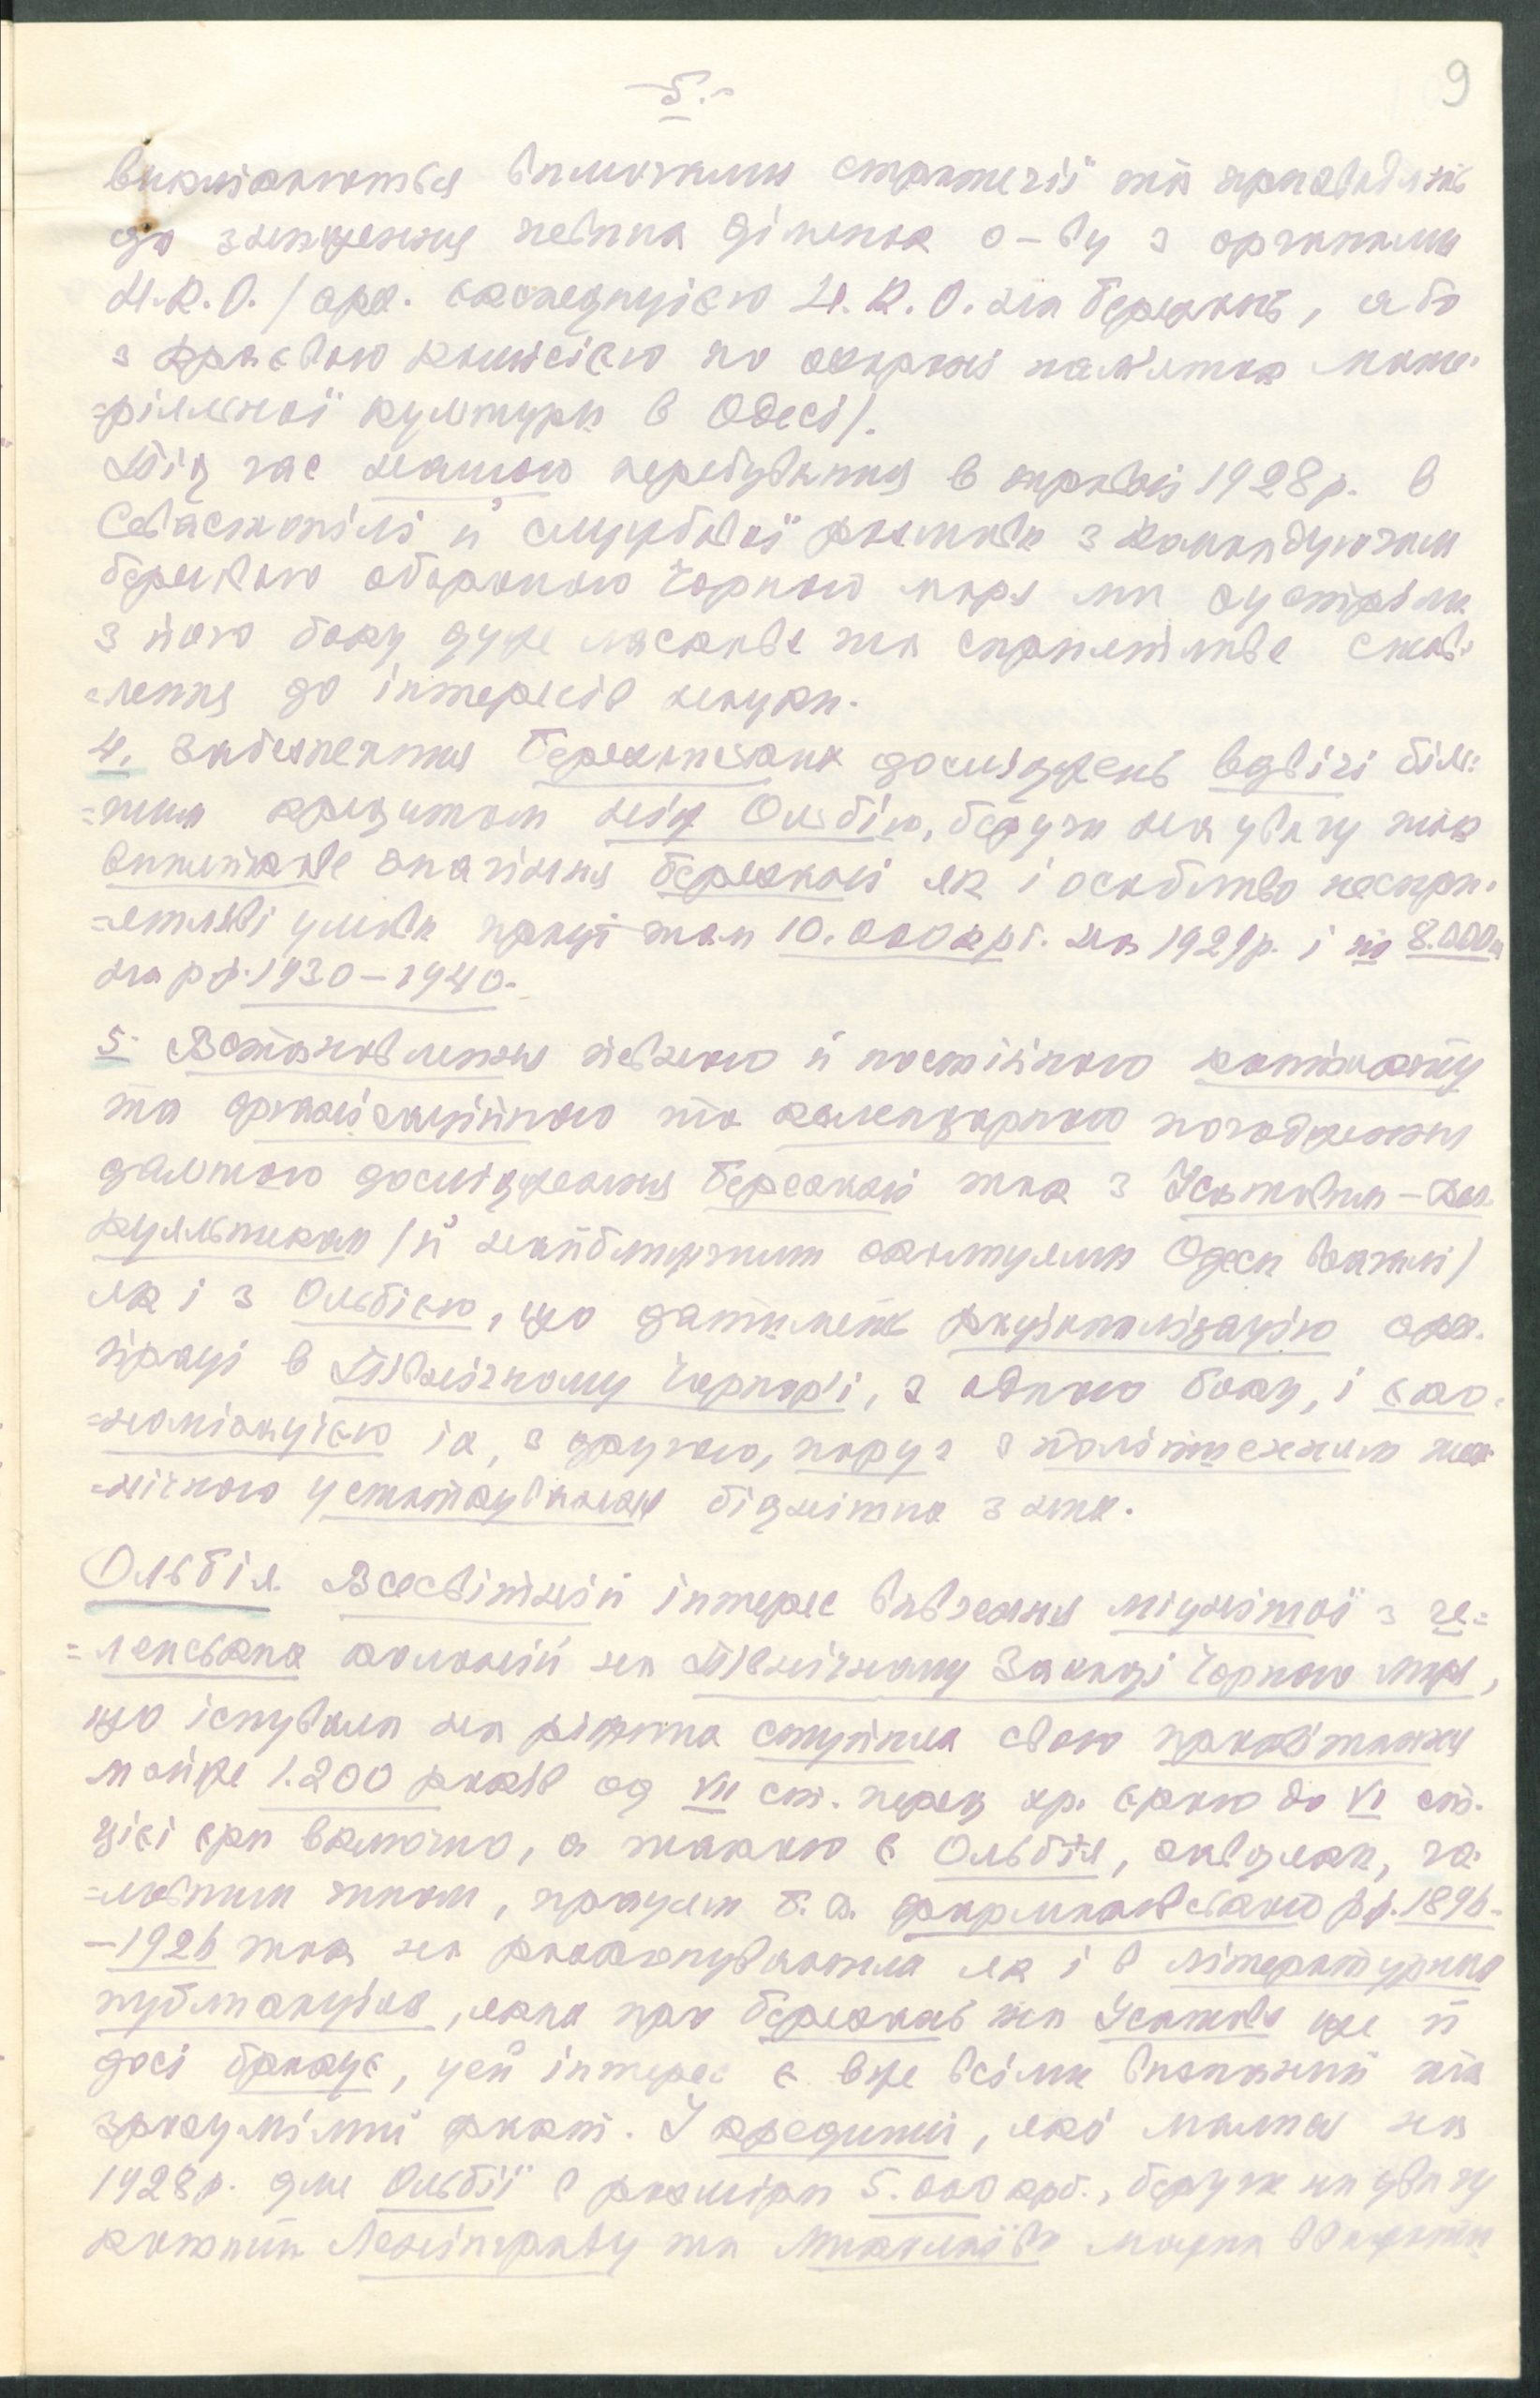 -5.-
9
викликаються вимогами стратегії та призводять
до зближення певних ділянок о-ву з органами
Н.К.О. / арх. експедицією Н.К.О. на Березань, або
з краєвою комісією по охороні пам'яток мате-
=ріяльної культури в Одесі/.
Під час нашого перебування в 1928 р. в
Севастополі й службової розмови з Командуючим
береговою обороною Чорного моря ми зустріли
з його боку дуже ласкаве та сприятливе став-
=лення до інтересів науки.
4. Забезпечення Березанських досліджень вдвічі біль-
=шим кредитом ніж Ольбію, беручи на увагу так
виняткове значіння Березані як і особливо неспри-
=ятливі умови праці там 10.000 крб. на 1929 р. і по 8.000
на рр. 1930-1940.
5. Встановлення певного й постійного контакту
та організаційного та календарного погодження
дальшого дослідження Березані так з Усатовим-Вел.
Куяльником /й найближчими околицями Одеси взагалі/
як і з Ольбією, що датиме раціоналізацію арх.
праці в Північному Чорномор'ї, з одного боку, і еко-
=номізацією їх, з другого, поруч з поліпшенням тех-
=нічного устаткування
Ольбія. Всесвітній інтерес вивчення міцнішої з ге-
=ленських колоній на Північному Заході Чорного Моря,
що існувала на різних ступнях свого процвітання
майже 1.200 років од VII ст. перед хр. ерою до VI ст.
цієї ери включно, а такою є Ольбія, завдяки, го-
=ловним чином, працям Б. В. Фармаковського рр. 1896-
-1926 так на розкопуваннях як і в літературних
публікаціях, яких про Березань та Усатово ще й
досі бракує, цей інтерес є вже всіми визнаний та
зрозумілий факт. У кредиті, які малися на
1928 р. для Ольбії в розмірі 5.000 крб., беручи на увагу
кошти Ленінграду та Миколаїва можна вбачати